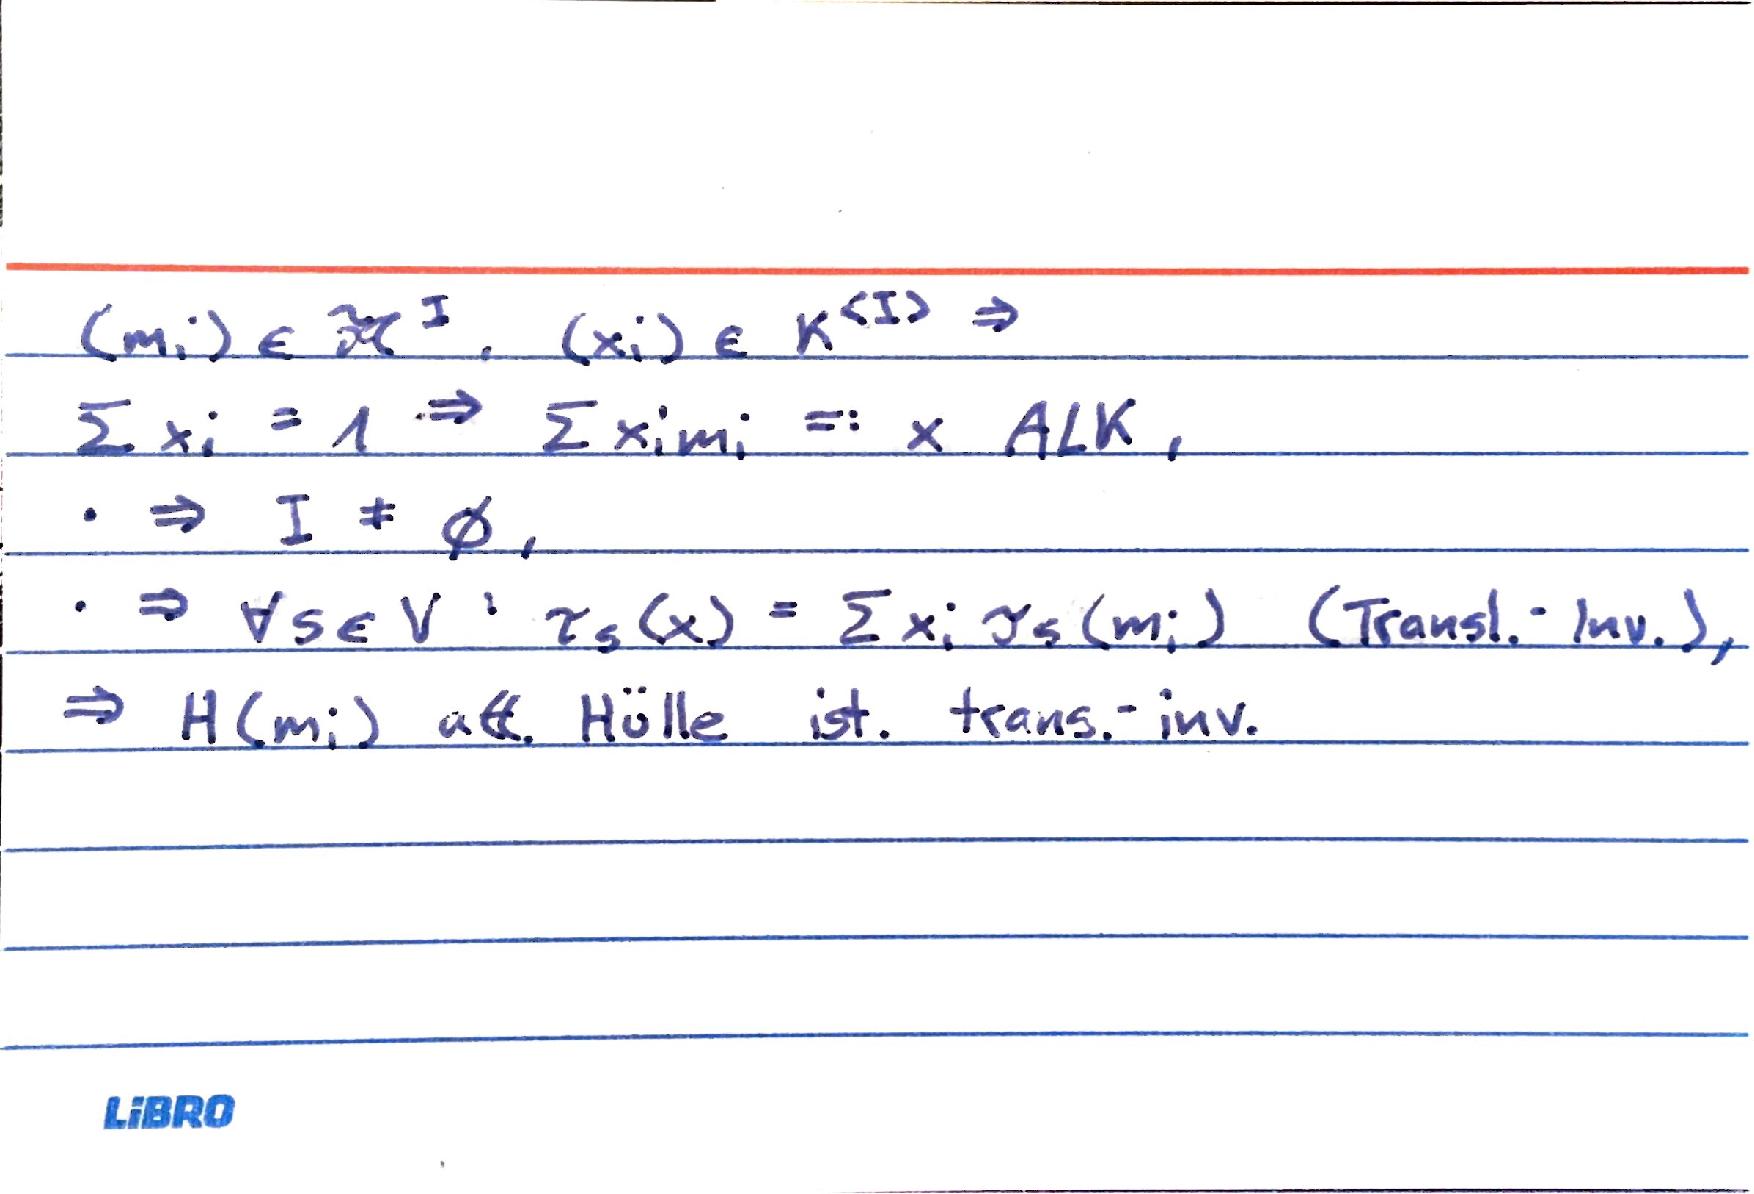 (mᵢ) ∈ 𝔐^I, (xᵢ) ∈ K^⟨I⟩ ⇒
Σ xᵢ = 1 ⇒ Σ xᵢmᵢ =: x ALK,
· ⇒ I ≠ ∅,
· ⇒ ∀s∈V : τₛ(x) = Σ xᵢ τₛ(mᵢ) (Transl.-Inv.),
⇒ H(mᵢ) aff. Hülle ist. trans.-inv.
LiBRO